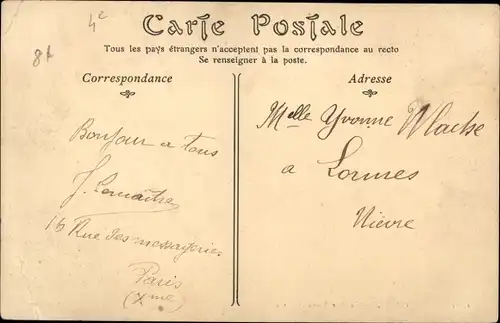 4e
8t
Carte Postale
Tous les pays étrangers n'acceptent pas la correspondance au recto
Se renseigner à la poste.
Correspondance
Bonjour a tous
J. Lemaitre
16 Rue des messageries
Paris
(Xme)
Adresse
Melle Yvonne
a Lormes
Nièvre